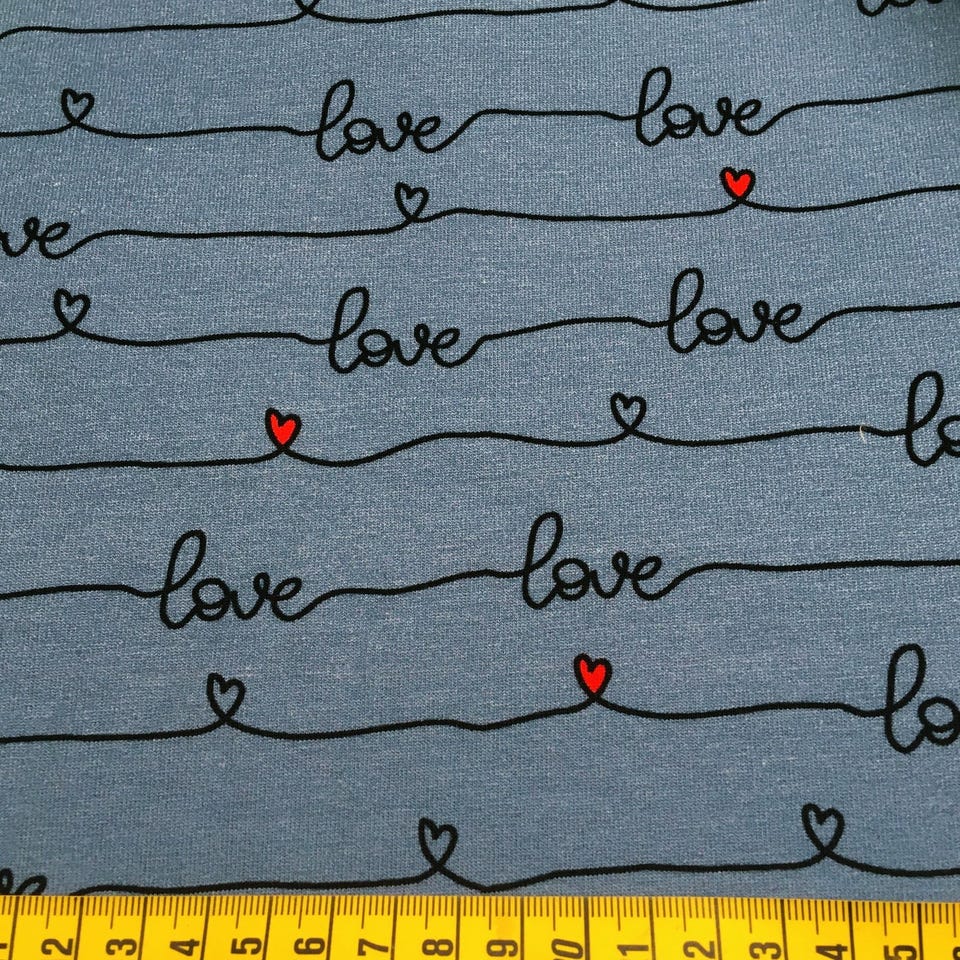 love love
ve
love love
lo
love love
lo
1 2 3 4 5 6 7 8 9 10 1 2 3 4 5